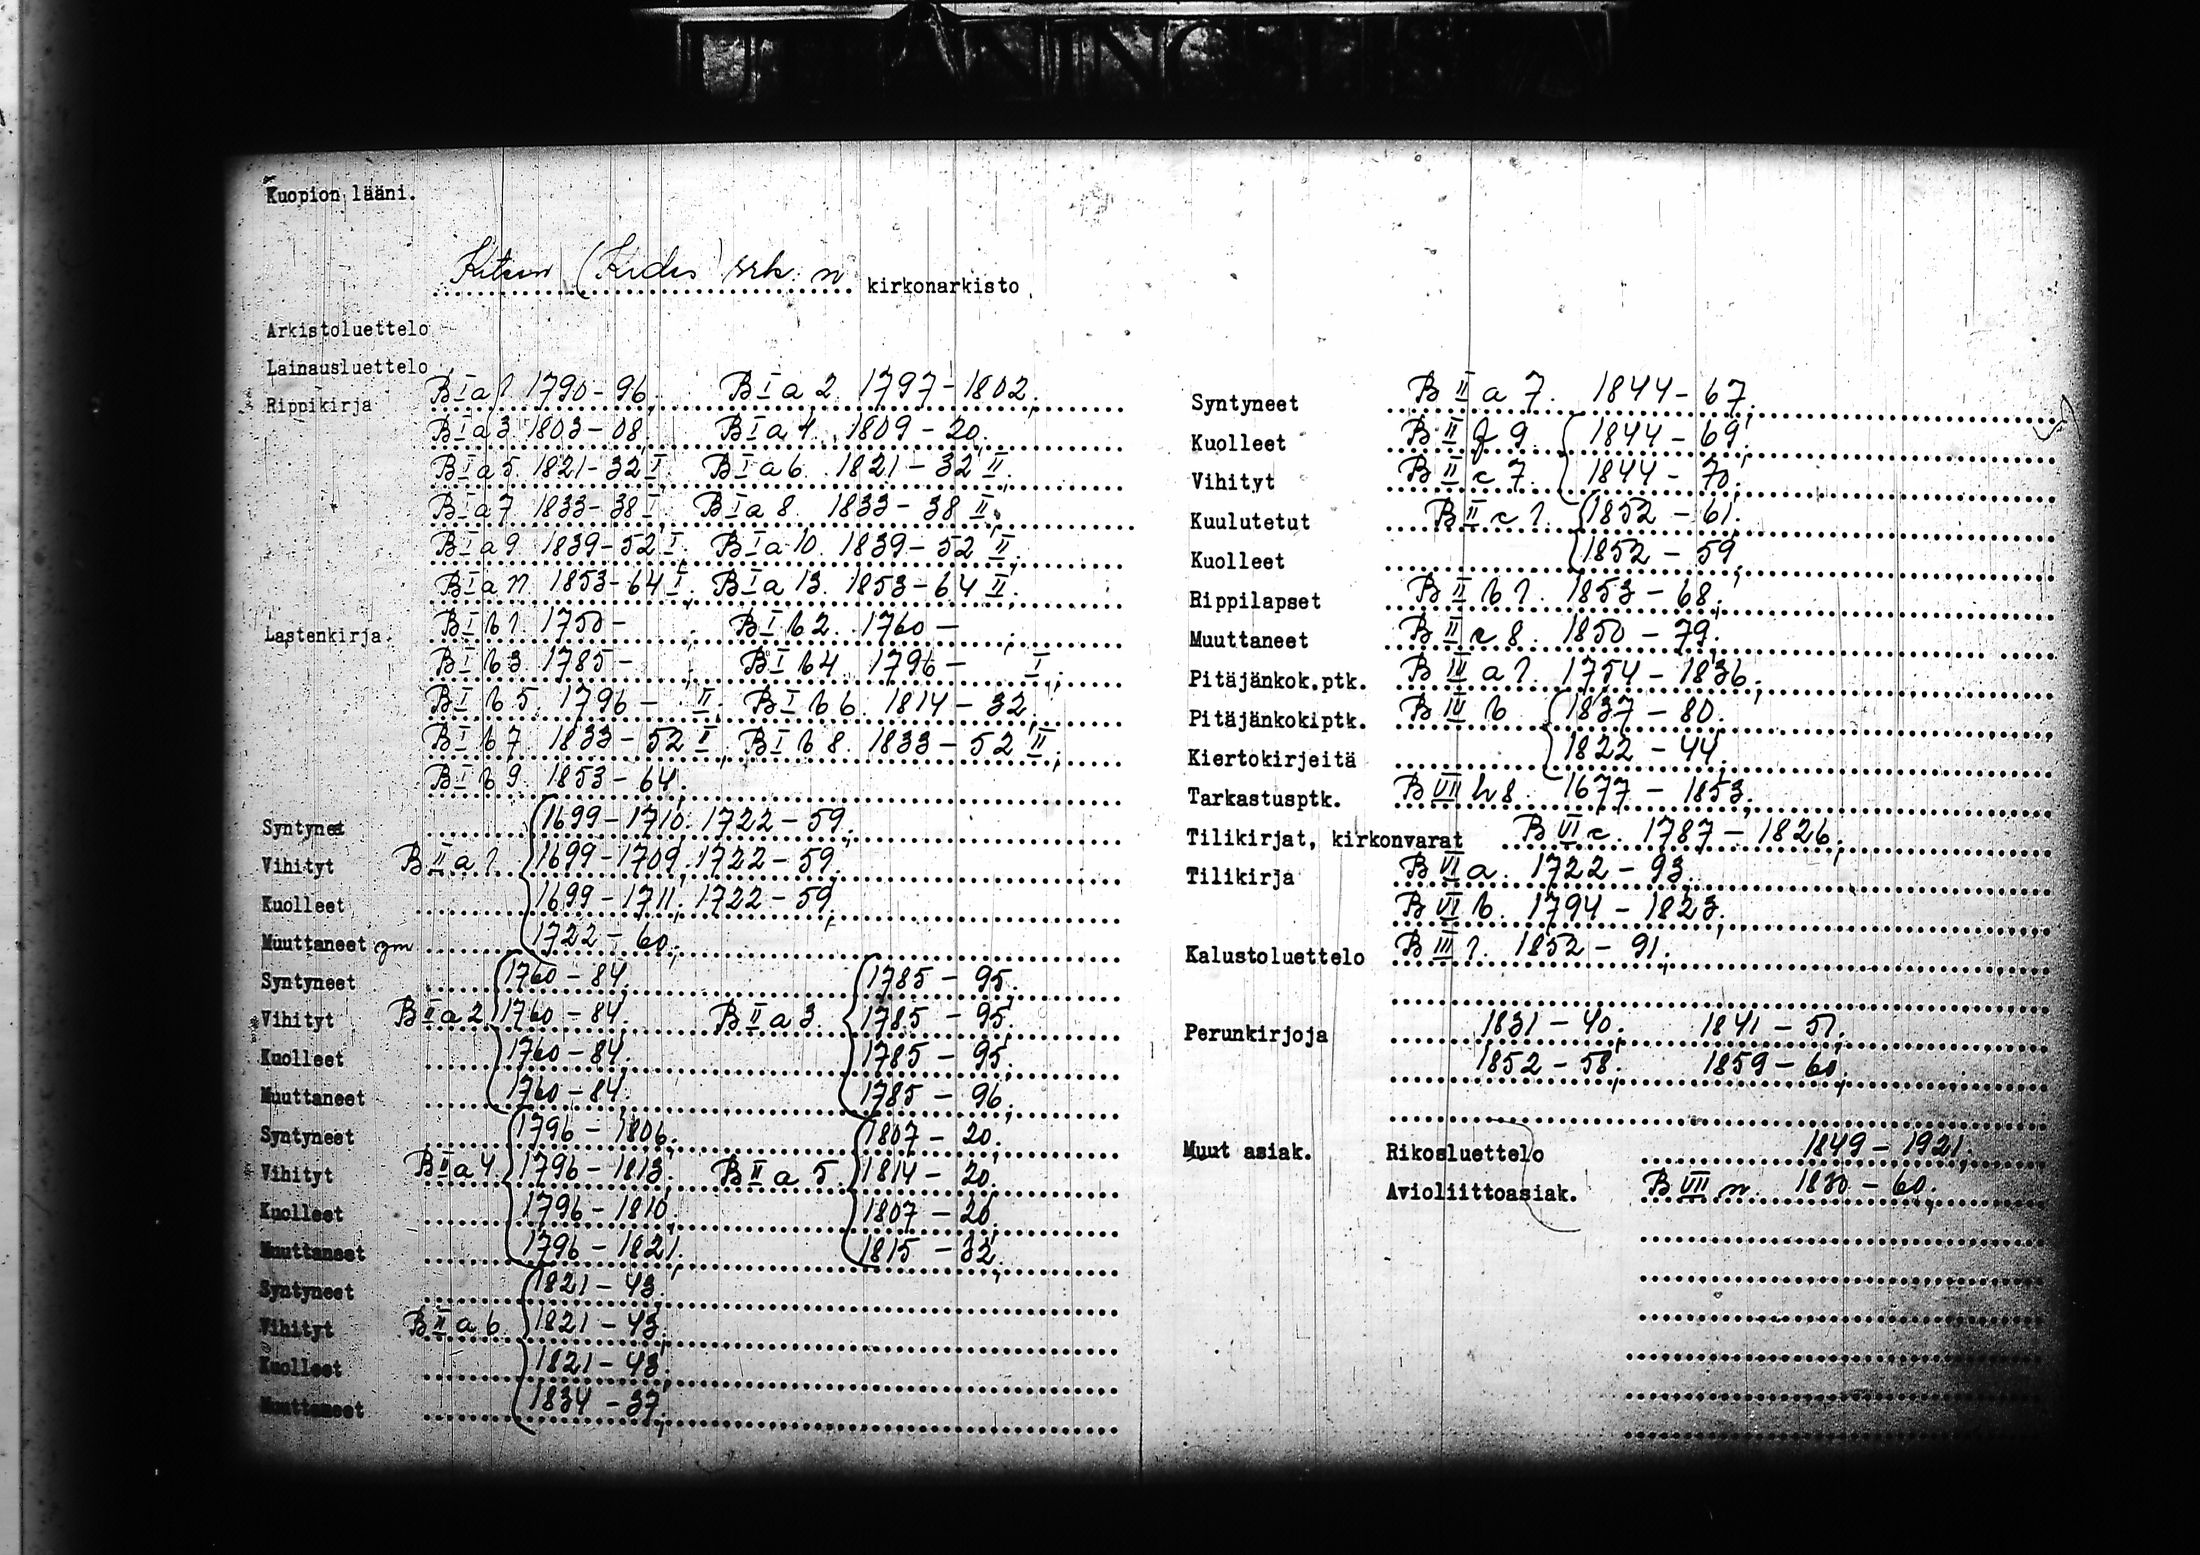 Kuopion lääni.
Kiteen (Kides) srk:n kirkonarkisto
Arkistoluettelo
Lainausluettelo
Rippikirja B I a 1. 1790-96; B I a 2. 1797-1802;
B I a 3. 1803-08. B I a 4. 1809-20;
B I a 5. 1821-32 I; B I a 6. 1821-32 II;
B I a 7. 1833-38 I; B I a 8. 1833-38 II;
B I a 9. 1839-52 I. B I a 10. 1839-52 II;
1853-64 I; B I a 13. 1853-64 II;
Lastenkirja. B I b 1. 1750- ; B I b 2. 1760- ;
B I b 3. 1785- ; B I b 4. 1796- I;
B I b 5. 1796- II; B I b 6. 1814-32;
B I b 7. 1833-52 I; B I b 8. 1833-52 II;
B I b 9. 1853-64;
Syntyneet 1699-1710; 1722-59;
Vihityt B II a 1. 1699-1709; 1722-59;
Kuolleet 1699-1711; 1722-59;
Muuttaneet ym 1722-60;
Syntyneet 1760-84; 1785-95;
Vihityt B II a 2. 1760-84; B II a 3. 1785-95;
Kuolleet 1760-84; 1785-95;
Muuttaneet 1760-84; 1785-96;
Syntyneet 1796-1806; 1807-20;
Vihityt B II a 4. 1796-1813; B II a 5. 1814-20;
Kuolleet 1796-1810; 1807-20;
Muuttaneet 1796-1821; 1815-32;
Syntyneet 1821-43;
Vihityt B II a 6. 1821-43;
Kuolleet 1821-43;
Muuttaneet 1834-37;
Syntyneet B II a 7. 1844-67;
Kuolleet B II f 9. 1844-69;
Vihityt B II c 7. 1844-70;
Kuulutetut B II c 1. 1852-61;
Kuolleet 1852-59;
Rippilapset B II b 1. 1853-68;
Muuttaneet B II c 8. 1850-79;
Pitäjänkok.ptk. B III a 1. 1754-1836;
Pitäjänkokiptk. B III b 1837-80.
Kiertokirjeitä 1822-44;
Tarkastusptk. B VII h 8. 1677-1853;
Tilikirjat, kirkonvarat B VI c. 1787-1826;
Tilikirja B VI a. 1722-93.
B VI b. 1794-1823;
Kalustoluettelo B III 1. 1852-91;
Perunkirjoja 1831-40; 1841-51;
1852-58; 1859-60;
Muut asiak. Rikosluettelo 1849-1921;
Avioliittoasiak. B VII n. 1830-60;